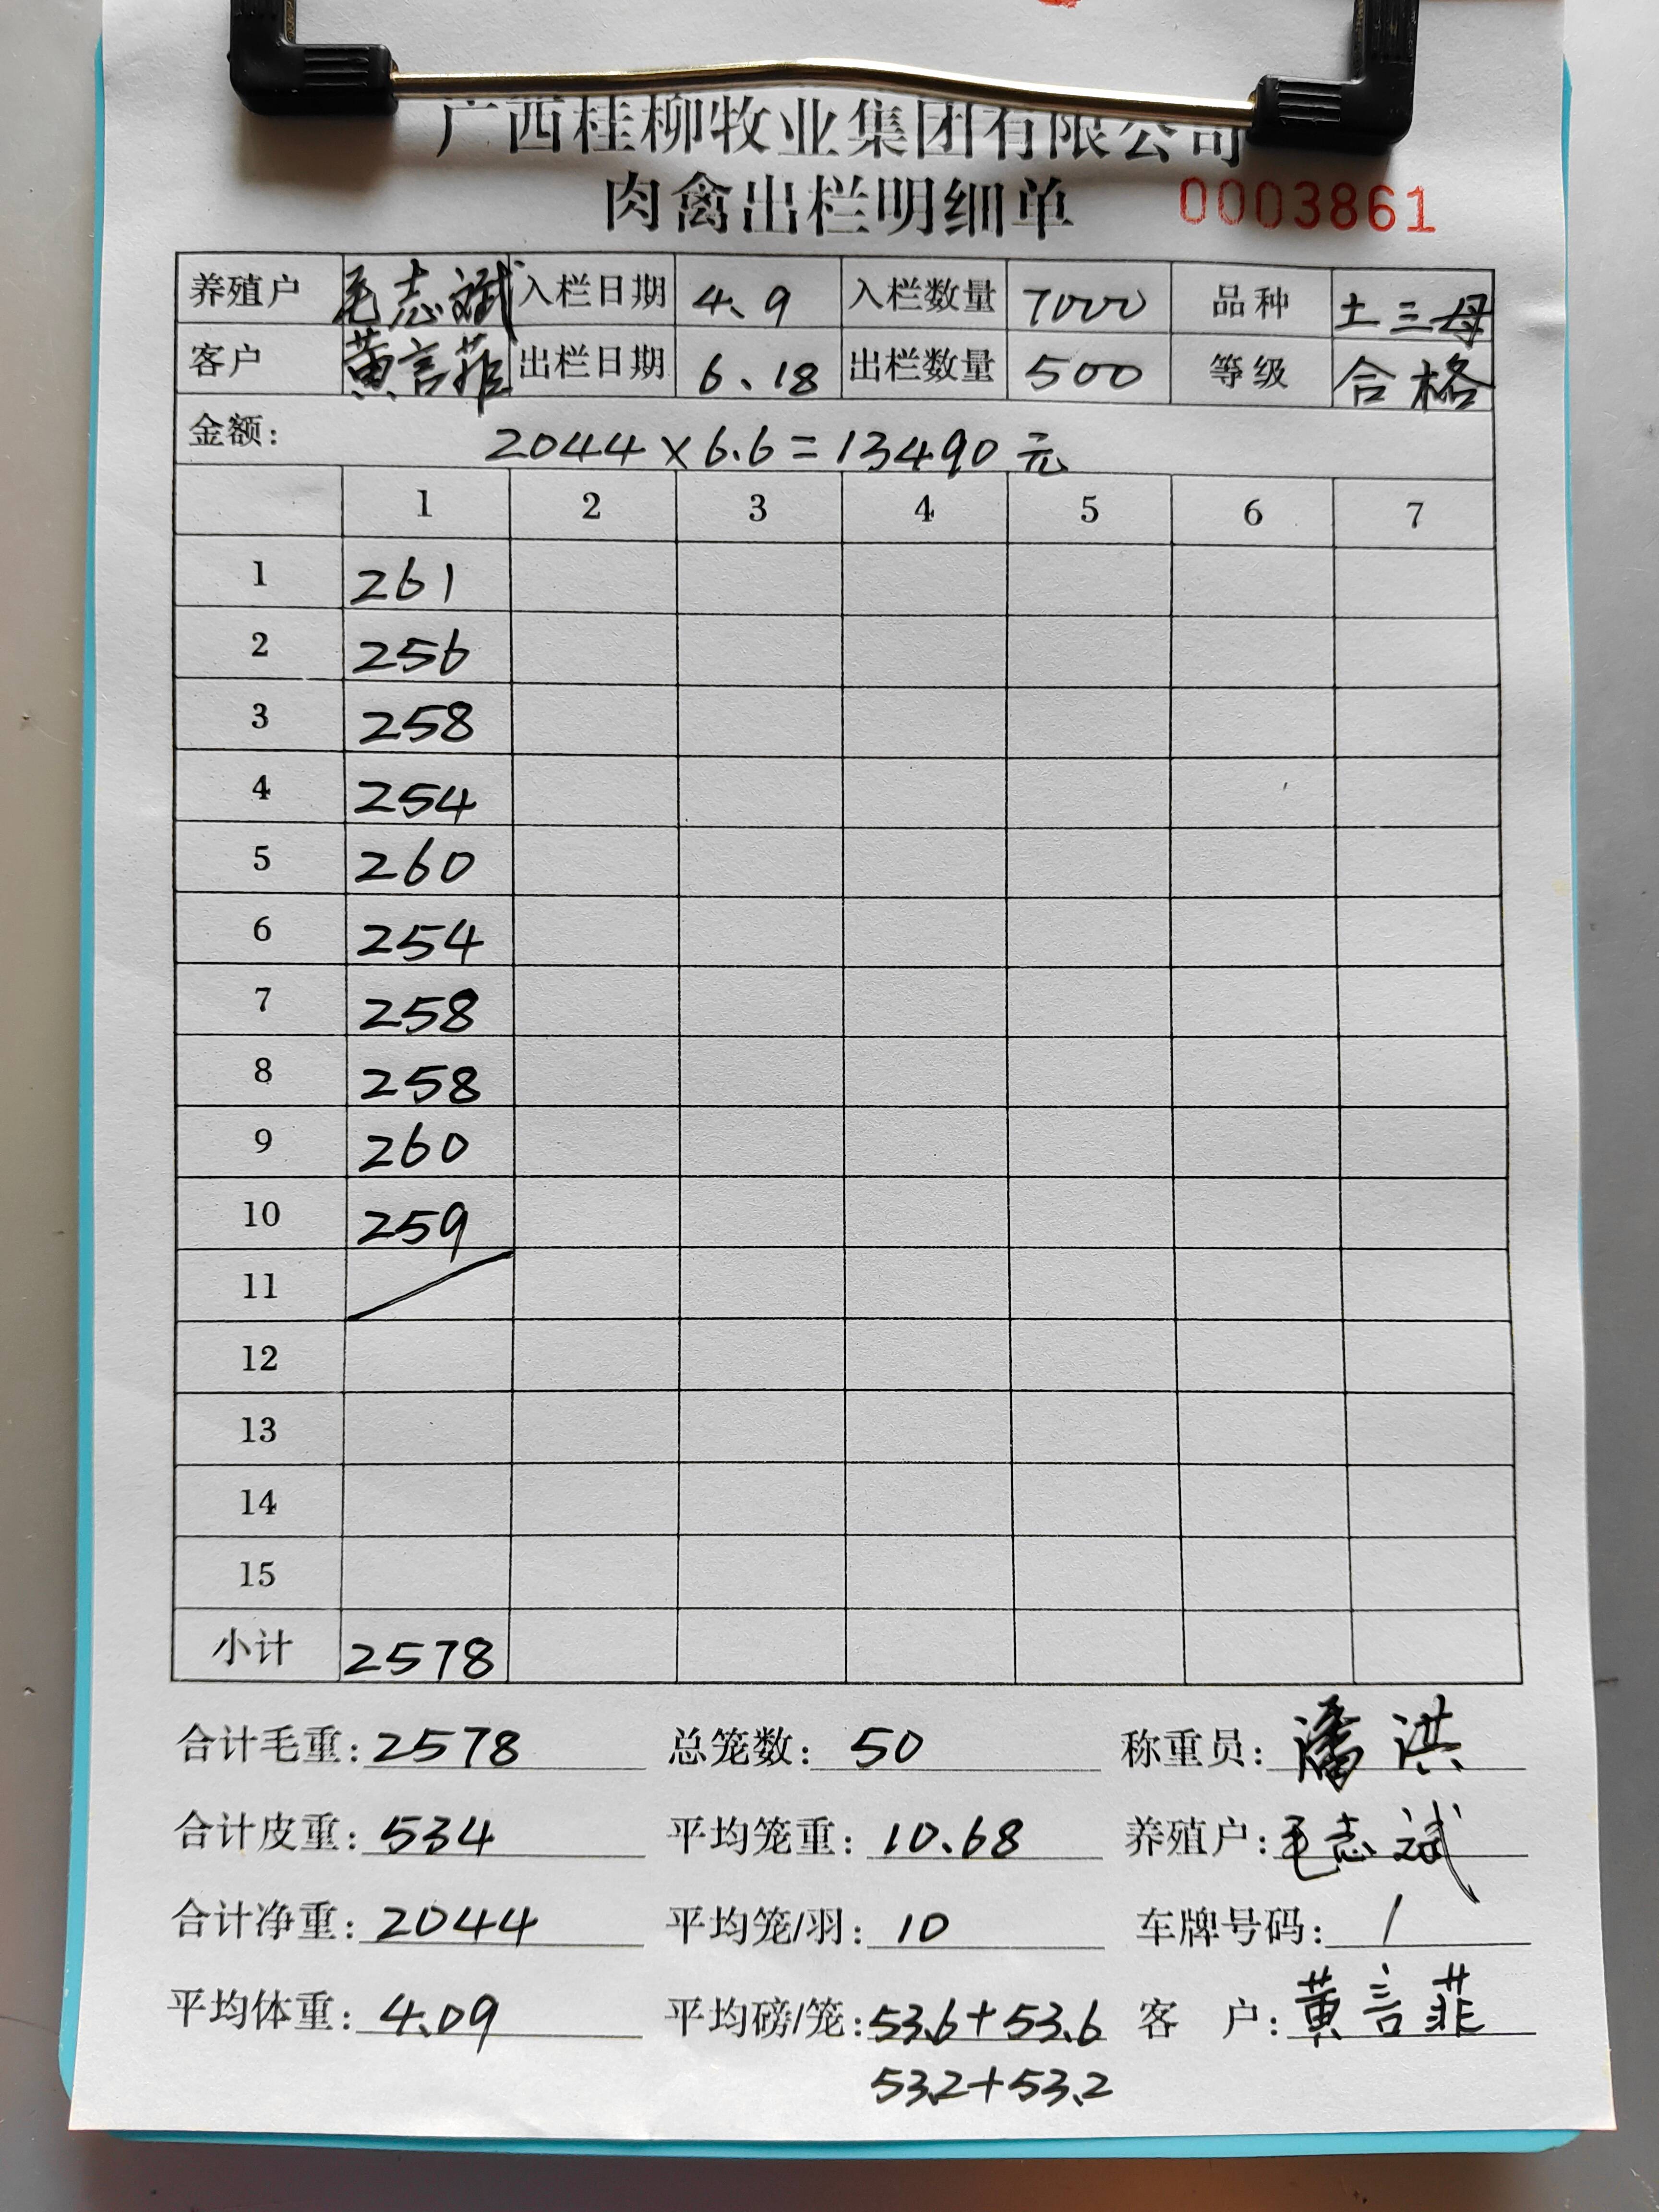 广西桂柳牧业集团有限公司
肉禽出栏明细单 0003861
养殖户 毛志斌 入栏日期 4.9 入栏数量 7000 品种 土三母
客户 黄言菲 出栏日期 6.18 出栏数量 500 等级 合格
金额: 2044×6.6=13490元
1 2 3 4 5 6 7
1 261
2 256
3 258
4 254
5 260
6 254
7 258
8 258
9 260
10 259
11
12
13
14
15
小计 2578
合计毛重: 2578 总笼数: 50 称重员: 潘洪
合计皮重: 534 平均笼重: 10.68 养殖户: 毛志斌
合计净重: 2044 平均笼/羽: 10 车牌号码: /
平均体重: 4.09 平均磅/笼: 53.6+53.6 客户: 黄言菲
53.2+53.2